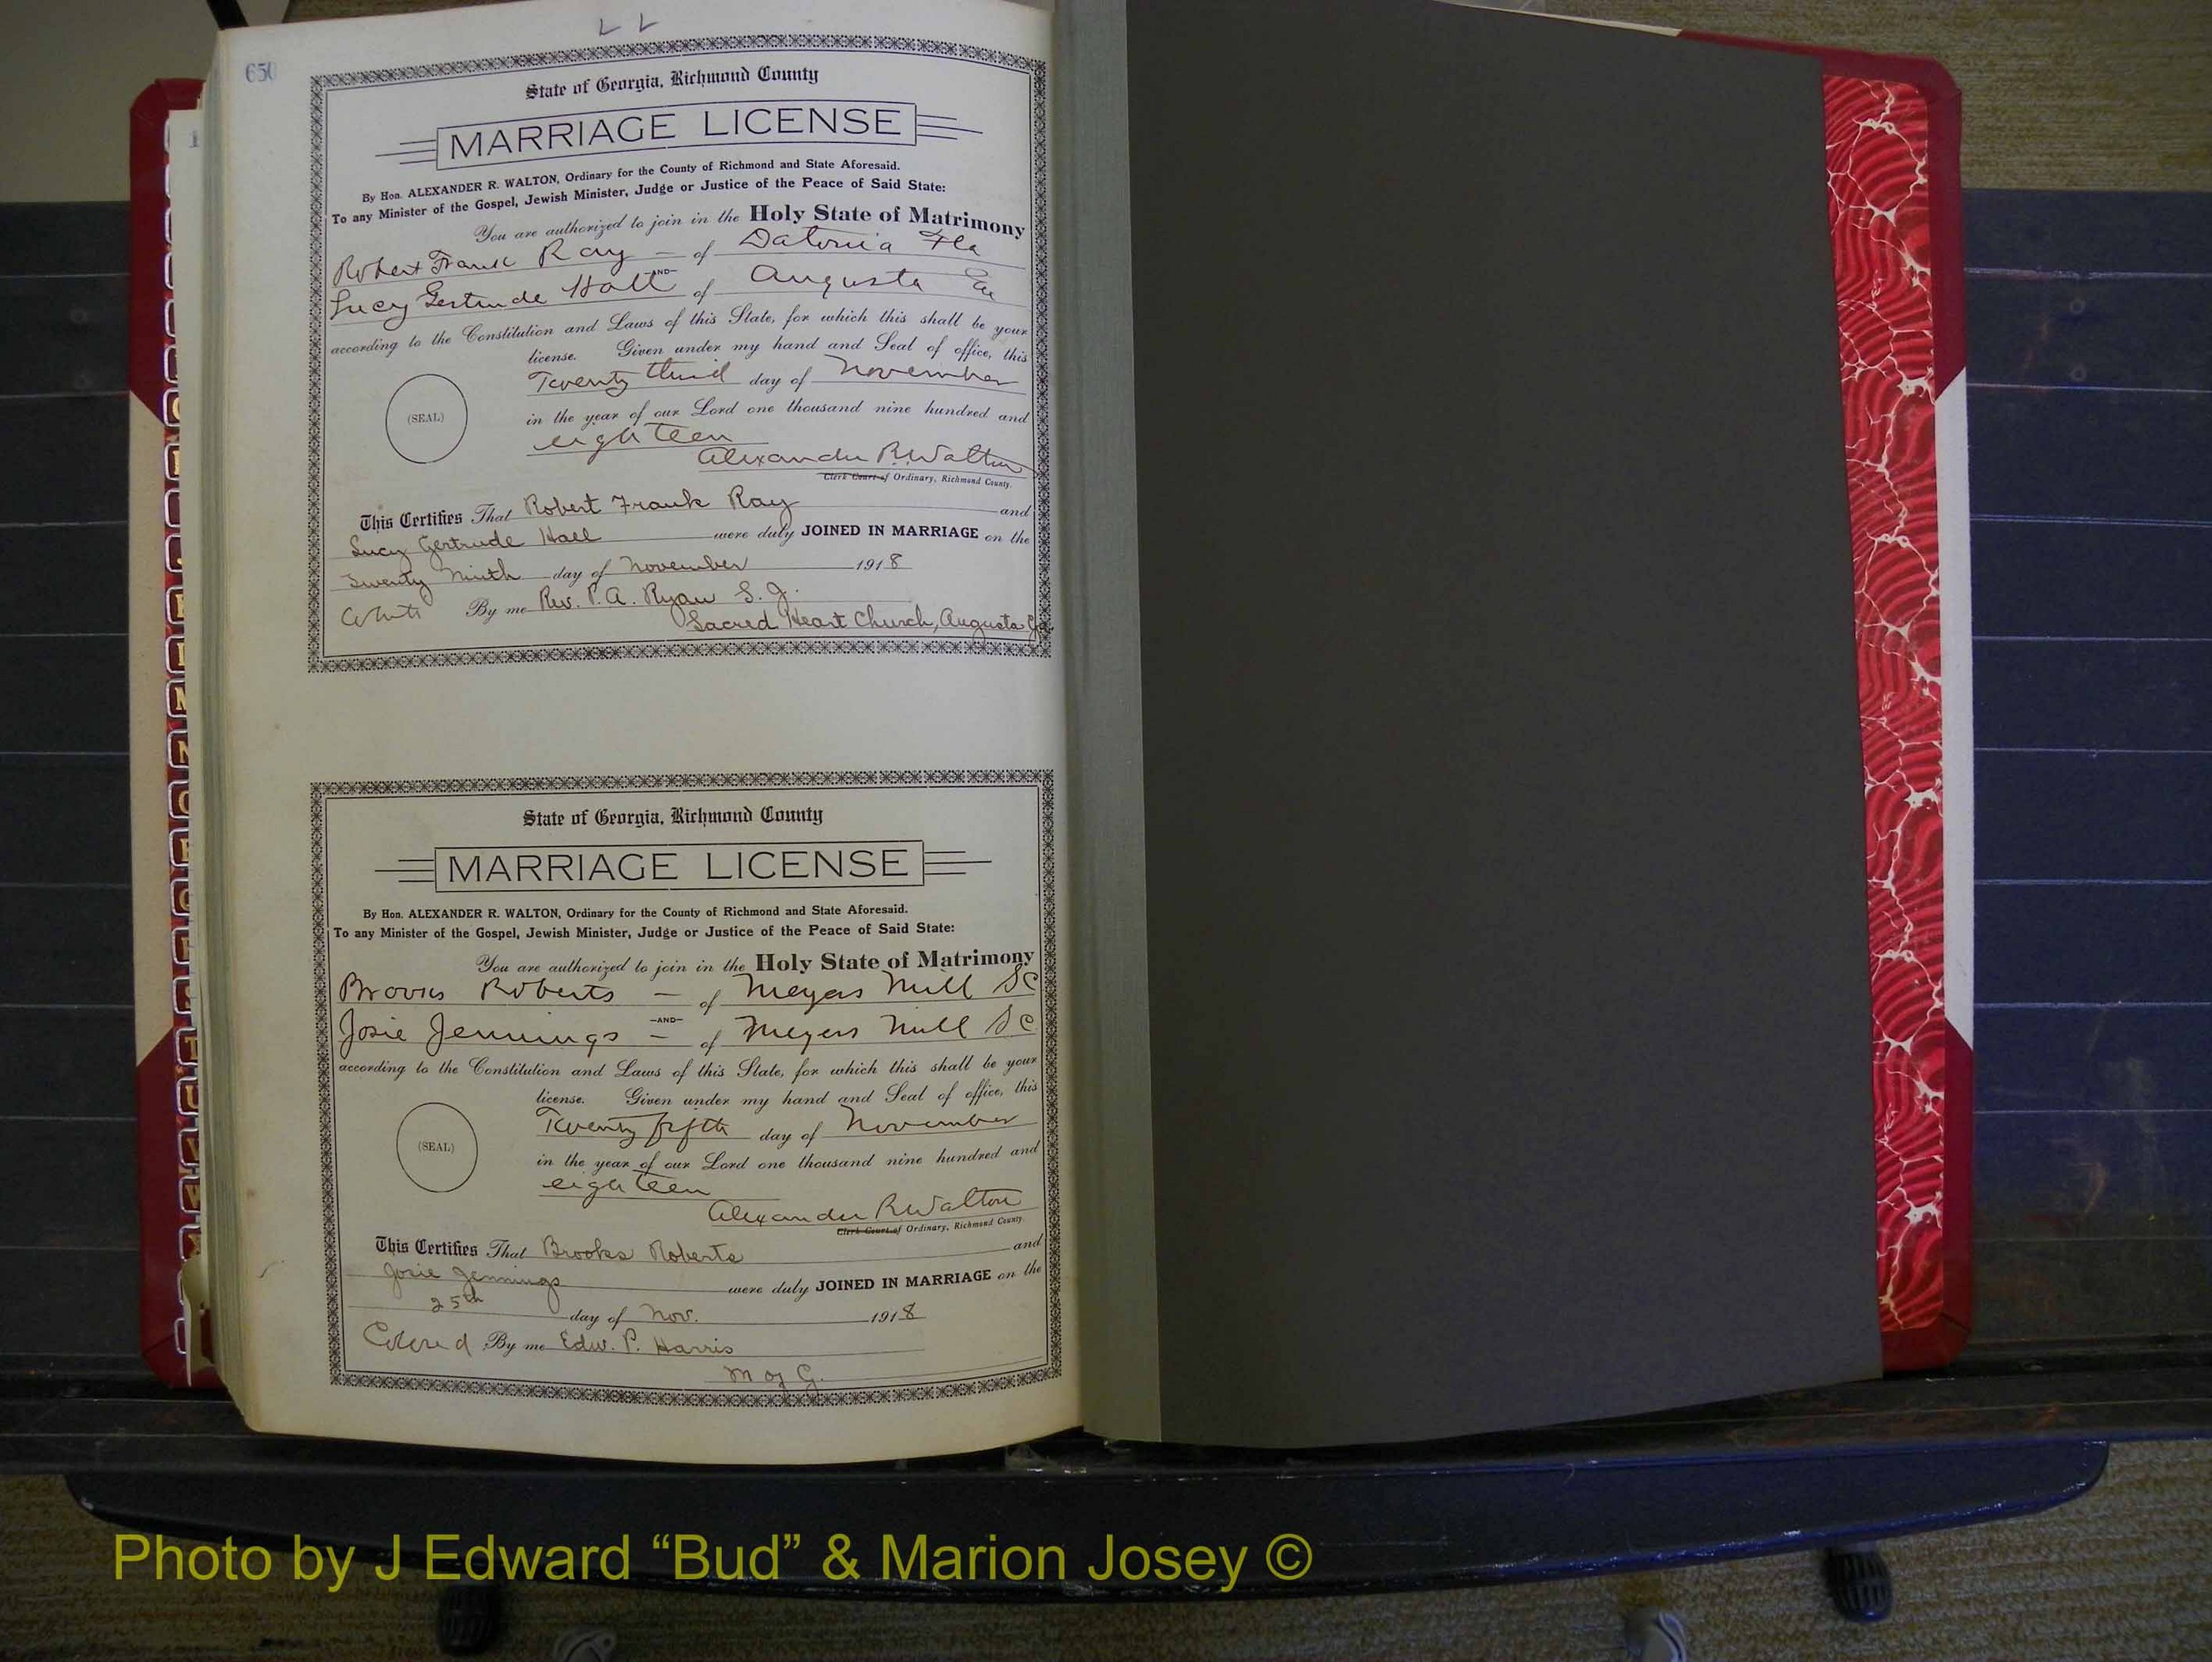 650
State of Georgia, Richmond County
MARRIAGE LICENSE
By Hon. ALEXANDER R. WALTON, Ordinary for the County of Richmond and State Aforesaid.
To any Minister of the Gospel, Jewish Minister, Judge or Justice of the Peace of Said State:
You are authorized to join in the Holy State of Matrimony
Robert Frank Ray — of Datonia Fla
—AND—
Lucy Gertrude Hall of Augusta Ga
according to the Constitution and Laws of this State, for which this shall be your
license. Given under my hand and Seal of office, this
Twenty third day of November
(SEAL)
in the year of our Lord one thousand nine hundred and
eighteen
Alexander R. Walton
Clerk Court of Ordinary, Richmond County.
This Certifies That Robert Frank Ray and
Lucy Gertrude Hall were duly JOINED IN MARRIAGE on the
Twenty Ninth day of November 1918
White By me Rev. P. A. Ryan S. J.
Sacred Heart Church, Augusta Ga.
State of Georgia, Richmond County
MARRIAGE LICENSE
By Hon. ALEXANDER R. WALTON, Ordinary for the County of Richmond and State Aforesaid.
To any Minister of the Gospel, Jewish Minister, Judge or Justice of the Peace of Said State:
You are authorized to join in the Holy State of Matrimony
Brooks Roberts — of Meyers Mill SC
—AND—
Josie Jennings — of Meyers Mill SC
according to the Constitution and Laws of this State, for which this shall be your
license. Given under my hand and Seal of office, this
Twenty fifth day of November
(SEAL)
in the year of our Lord one thousand nine hundred and
eighteen
Alexander R. Walton
Clerk Court of Ordinary, Richmond County.
This Certifies That Brooks Roberts and
Josie Jennings were duly JOINED IN MARRIAGE on the
25th day of Nov. 1918
Colored By me Edw. P. Harris
M of G.
Photo by J Edward “Bud” & Marion Josey ©